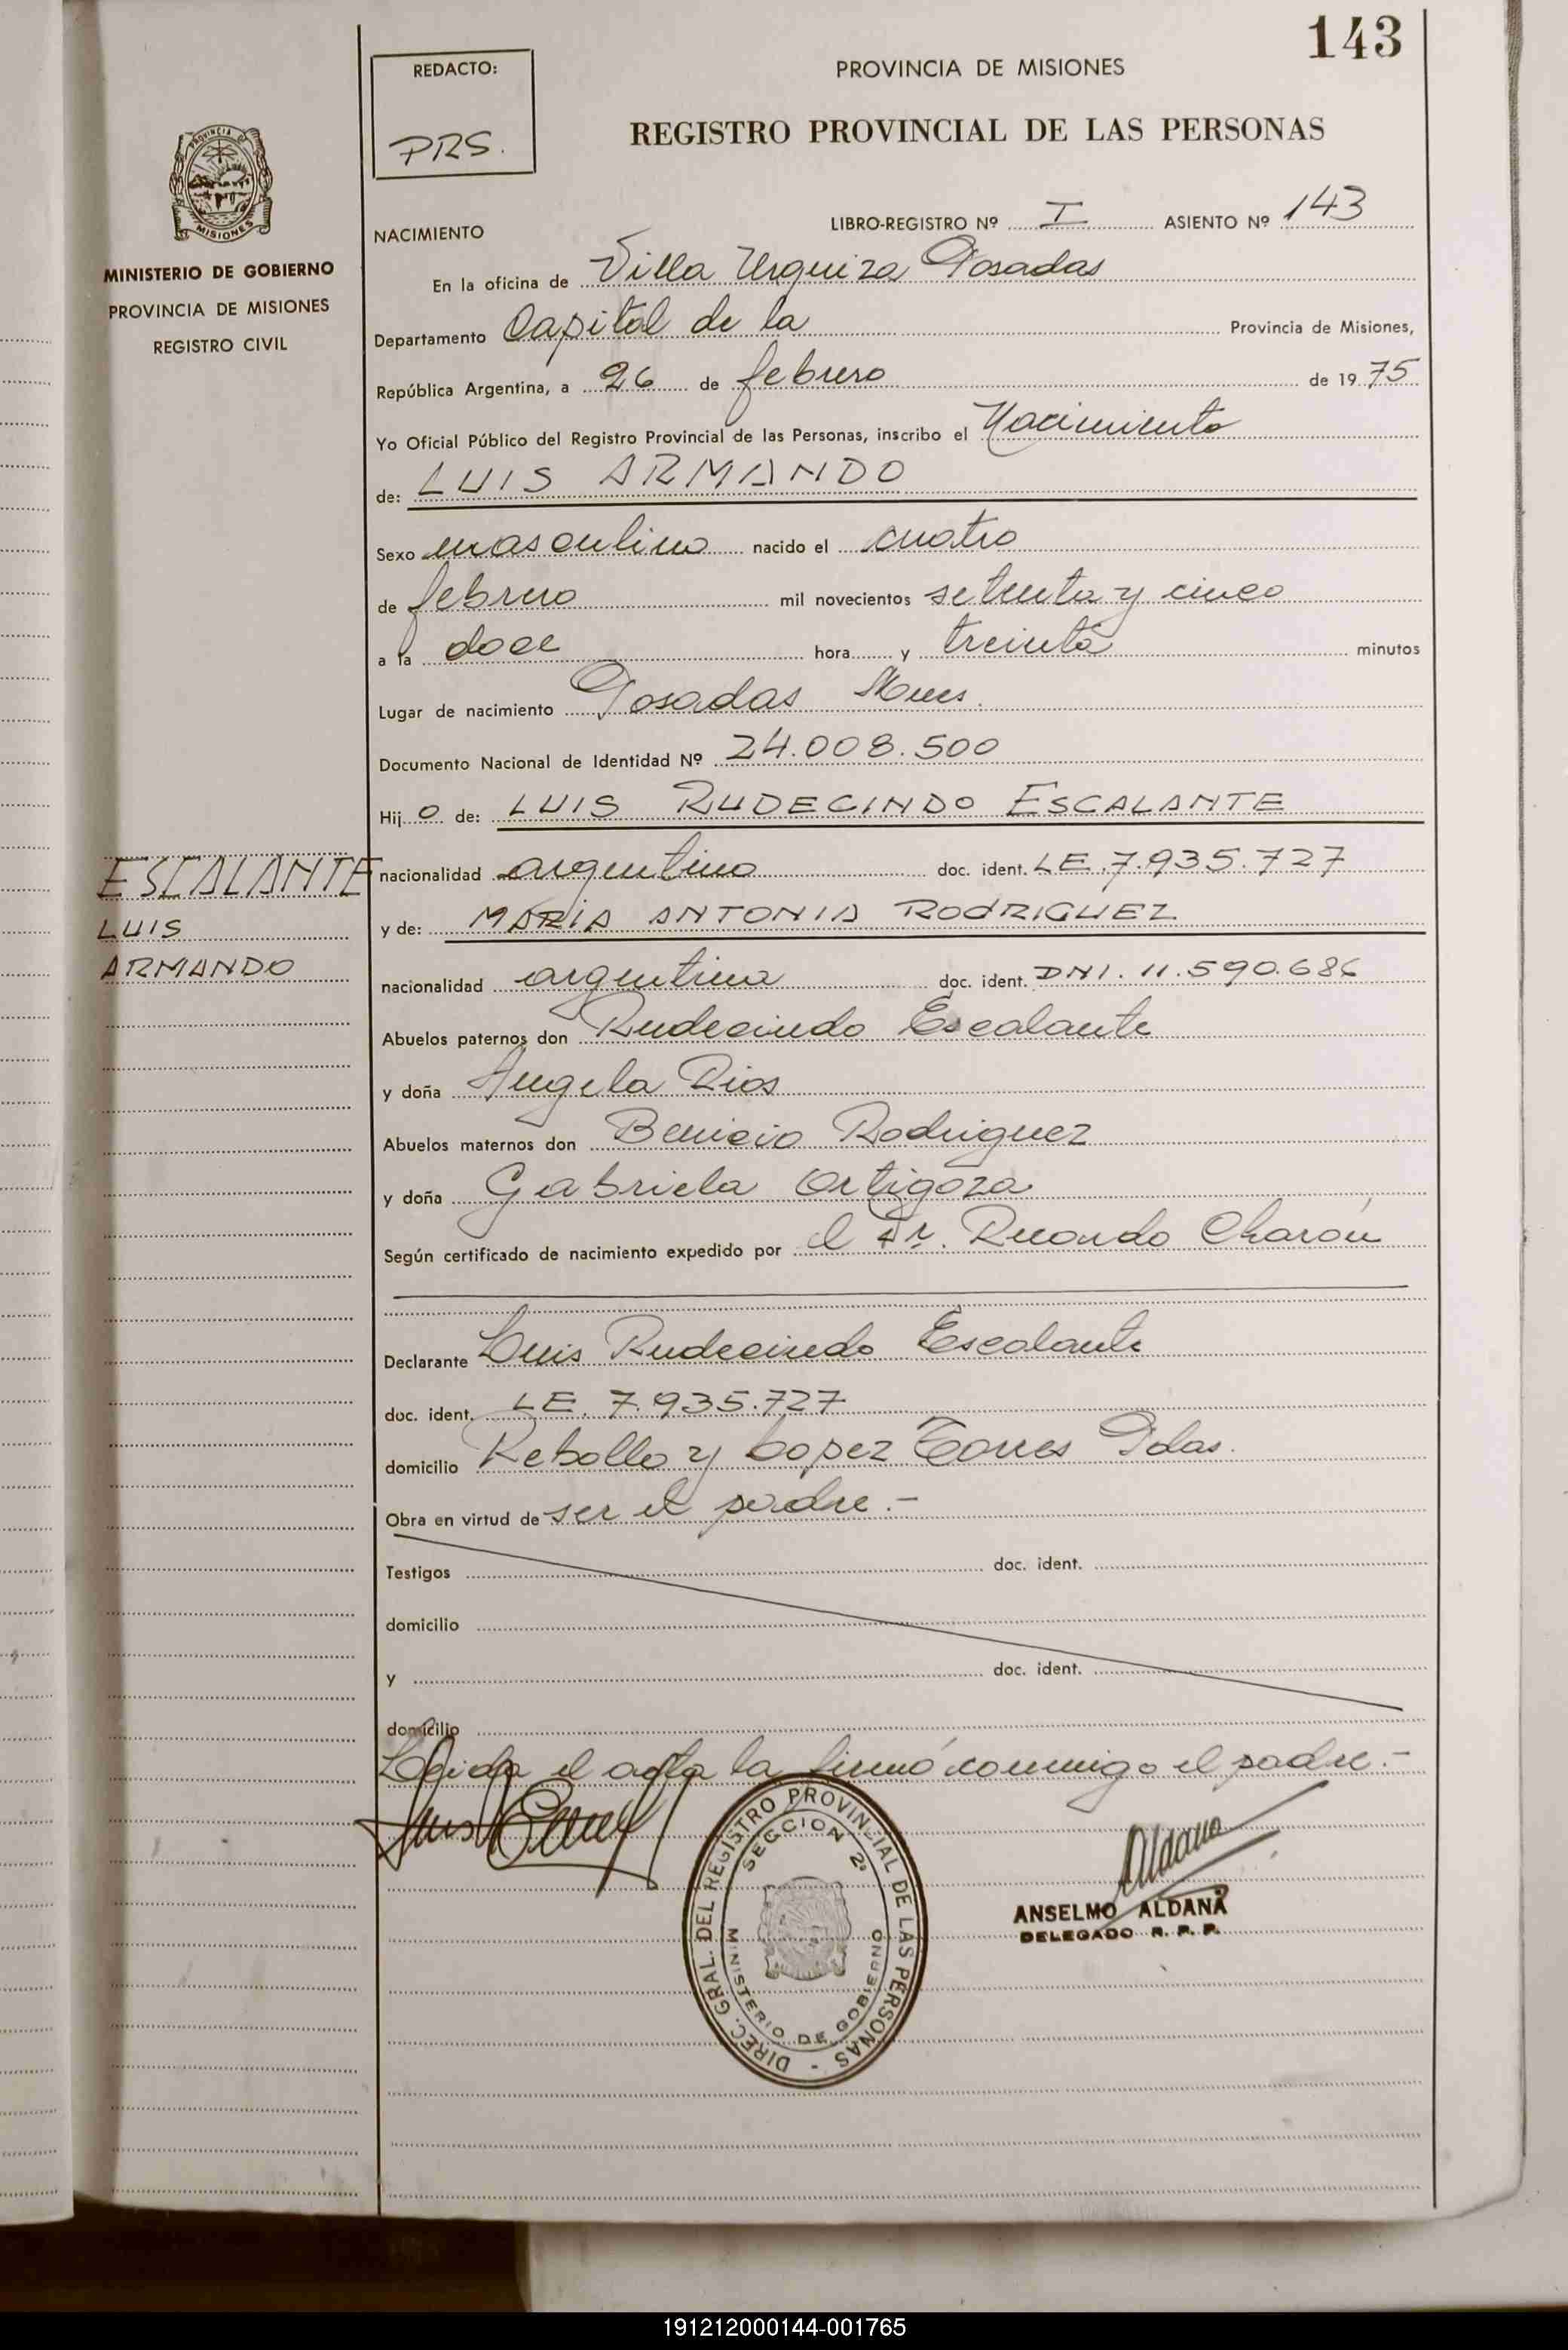 143
REDACTO:
PRS.
PROVINCIA DE MISIONES
REGISTRO PROVINCIAL DE LAS PERSONAS
PROVINCIA DE
MISIONES
MINISTERIO DE GOBIERNO
PROVINCIA DE MISIONES
REGISTRO CIVIL
NACIMIENTO
LIBRO-REGISTRO Nº I ASIENTO Nº 143
En la oficina de Villa Urquiza Posadas
Departamento Capital de la Provincia de Misiones,
República Argentina, a 26 de febrero de 1975
Yo Oficial Público del Registro Provincial de las Personas, inscribo el Nacimiento
de: LUIS ARMANDO
Sexo masculino nacido el cuatro
de febrero mil novecientos setenta y cinco
a la doce hora y treinta minutos
Lugar de nacimiento Posadas Mnes.
Documento Nacional de Identidad Nº 24.008.500
Hijo de: LUIS RUDECINDO ESCALANTE
ESCALANTE
LUIS
ARMANDO
nacionalidad argentino doc. ident. LE.7.935.727
y de: MARIA ANTONIA RODRIGUEZ
nacionalidad argentina doc. ident. DNI. 11.590.686
Abuelos paternos don Rudecindo Escalante
y doña Angela Rios
Abuelos maternos don Benicio Rodriguez
y doña Gabriela Ortigoza
Según certificado de nacimiento expedido por el Dr. Charón
Declarante Luis Rudecindo Escalante
doc. ident. LE. 7.935.727
domicilio Rebollo y Lopez Torres Pdas.
Obra en virtud de ser el padre.-
Testigos doc. ident.
domicilio
y doc. ident.
domicilio
Leida el acta la firmó conmigo el padre.-
DIREC. GRAL. DEL REGISTRO PROVINCIAL DE LAS PERSONAS -
SECCION 2ª
MINISTERIO DE GOBIERNO
Aldana
ANSELMO ALDANA
DELEGADO R. P. P.
191212000144-001765